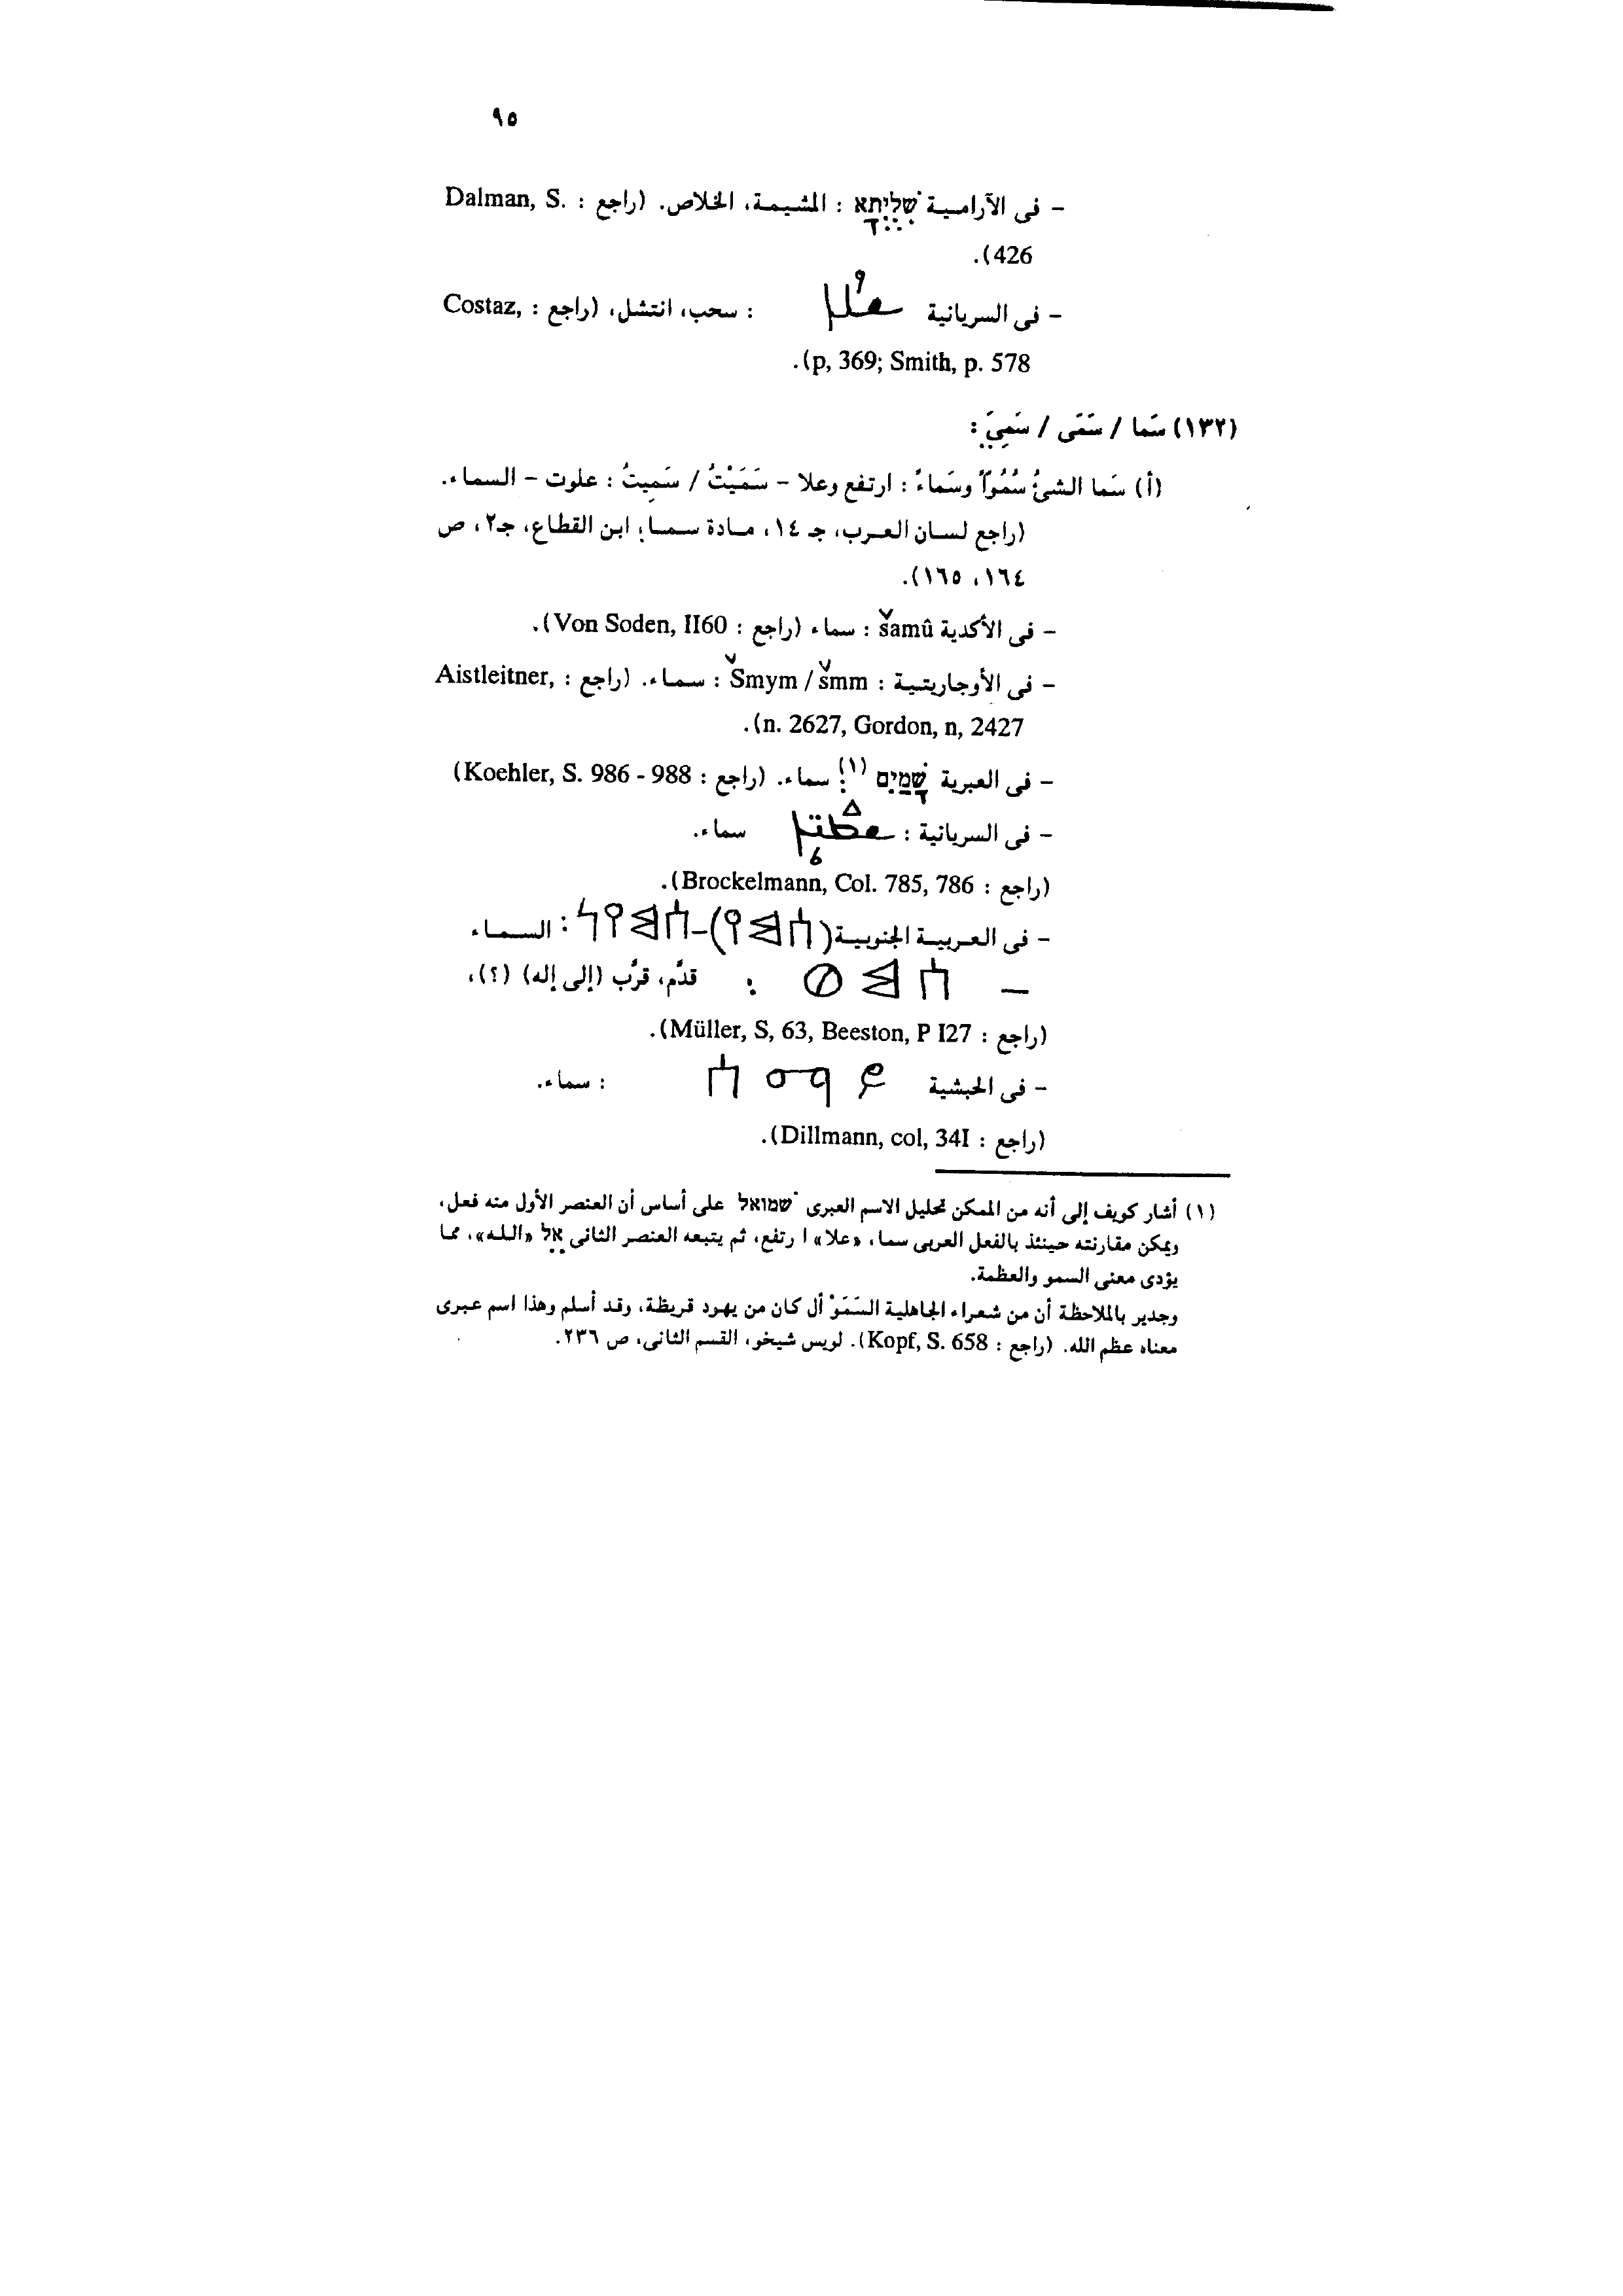 ٩٥
- فى الآرامية שְׁלִיתָא : المشيمة، الخلاص. (راجع : Dalman, S.
426).
- فى السريانية ܫܠܐ : سحب، انتشل، (راجع : Costaz,
p, 369; Smith, p. 578).
(١٣٢) سَما / سَمَى / سَمِيَ :
(أ) سَما الشئُ سُمُوّاً وسَماءً : ارتفع وعلا - سَمَيْتُ / سَمِيتُ : علوت - السماء.
(راجع لسان العرب، جـ ١٤، مادة سما؛ ابن القطاع، جـ٢، ص
١٦٤، ١٦٥).
- فى الأكدية šamû : سماء (راجع : Von Soden, II60).
- فى الأوجاريتية : Šmym / šmm : سماء. (راجع : Aistleitner,
n. 2627, Gordon, n, 2427).
- فى العبرية שָׁמַיִם (١): سماء. (راجع : Koehler, S. 986 - 988)
- فى السريانية : ܫܡܝܐ سماء.
(راجع : Brockelmann, Col. 785, 786).
- فى العربية الجنوبية (𐩪𐩣𐩺)-𐩪𐩣𐩺𐩬 : السماء
— 𐩪𐩣𐩥 : قدَّم، قرَّب (إلى إله) (؟)،
(راجع : Müller, S, 63, Beeston, P I27).
- فى الحبشية ሰማይ : سماء.
(راجع : Dillmann, col, 34I).
(١) أشار كوبف إلى أنه من الممكن تحليل الاسم العبرى שמואל على أساس أن العنصر الأول منه فعل،
ويمكن مقارنته حينئذ بالفعل العربى سما، «علا» ا رتفع، ثم يتبعه العنصر الثانى אֵל «الله»، مما
يؤدى معنى السمو والعظمة.
وجدير بالملاحظة أن من شعراء الجاهلية السَمَوْ أل كان من يهود قريظة، وقد أسلم وهذا اسم عبرى
معناه عظم الله. (راجع : Kopf, S. 658). لويس شيخو، القسم الثانى، ص ٢٣٦.